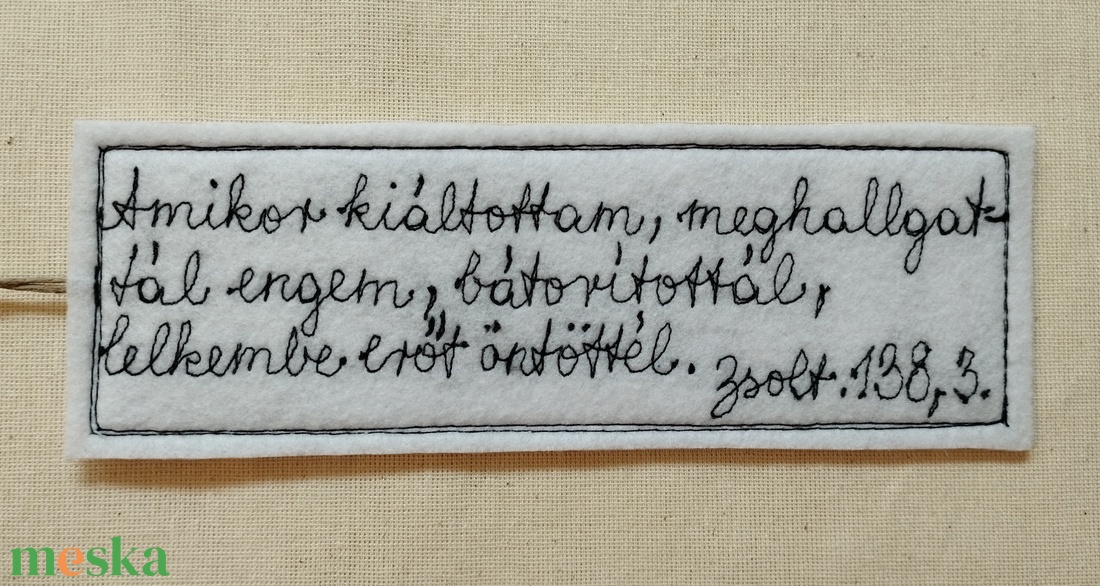 Amikor kiáltottam, meghallgat-
tál engem, bátorítottál,
lelkembe erőt öntöttél.
Zsolt. 138,3.
meska